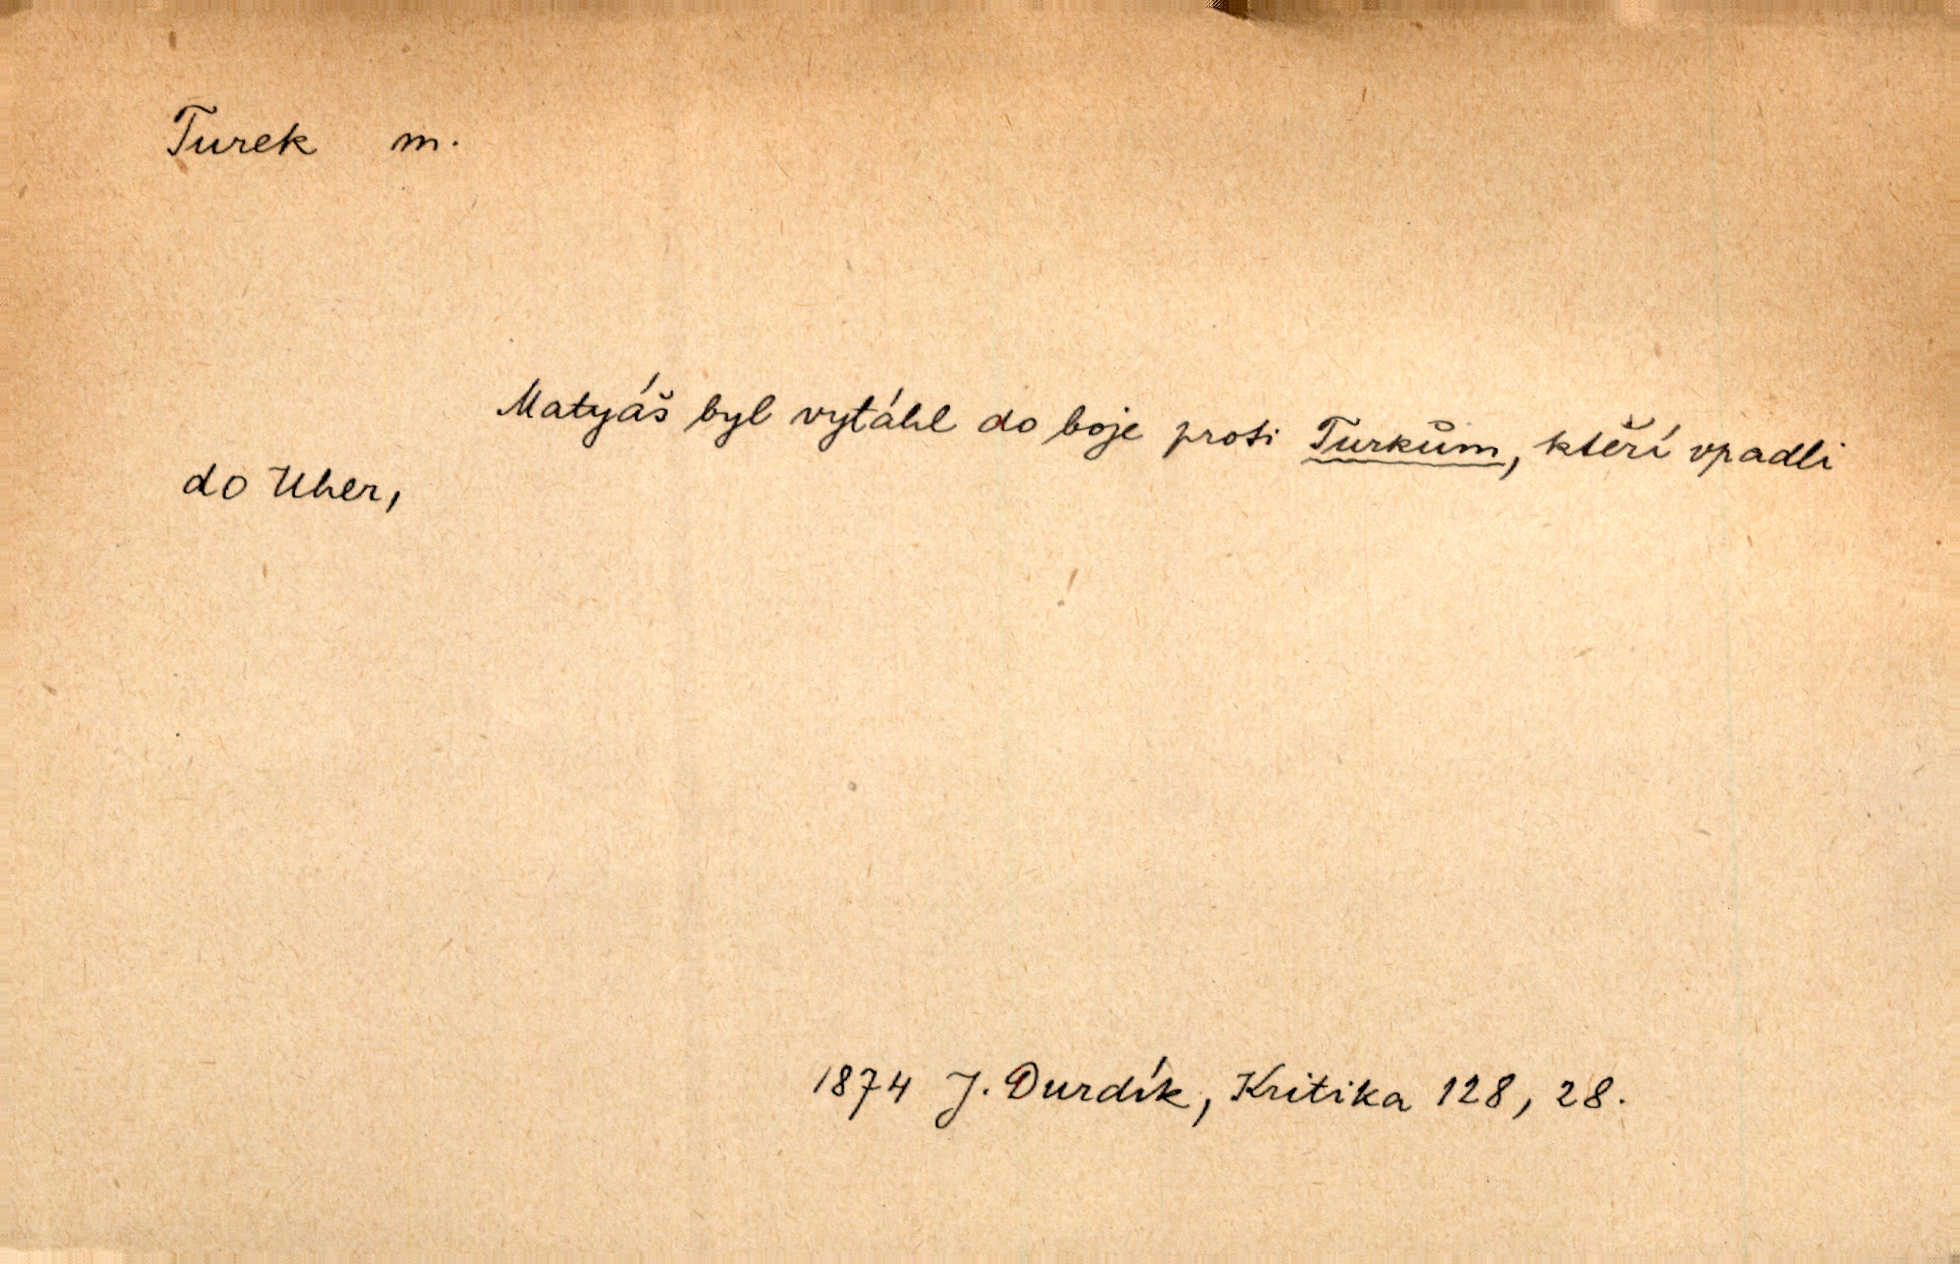 Turek m.
Matyáš byl vytáhl do boje proti Turkům, kteří vpadli
do Uher,
1874 J. Durdík, Kritika 128, 28.